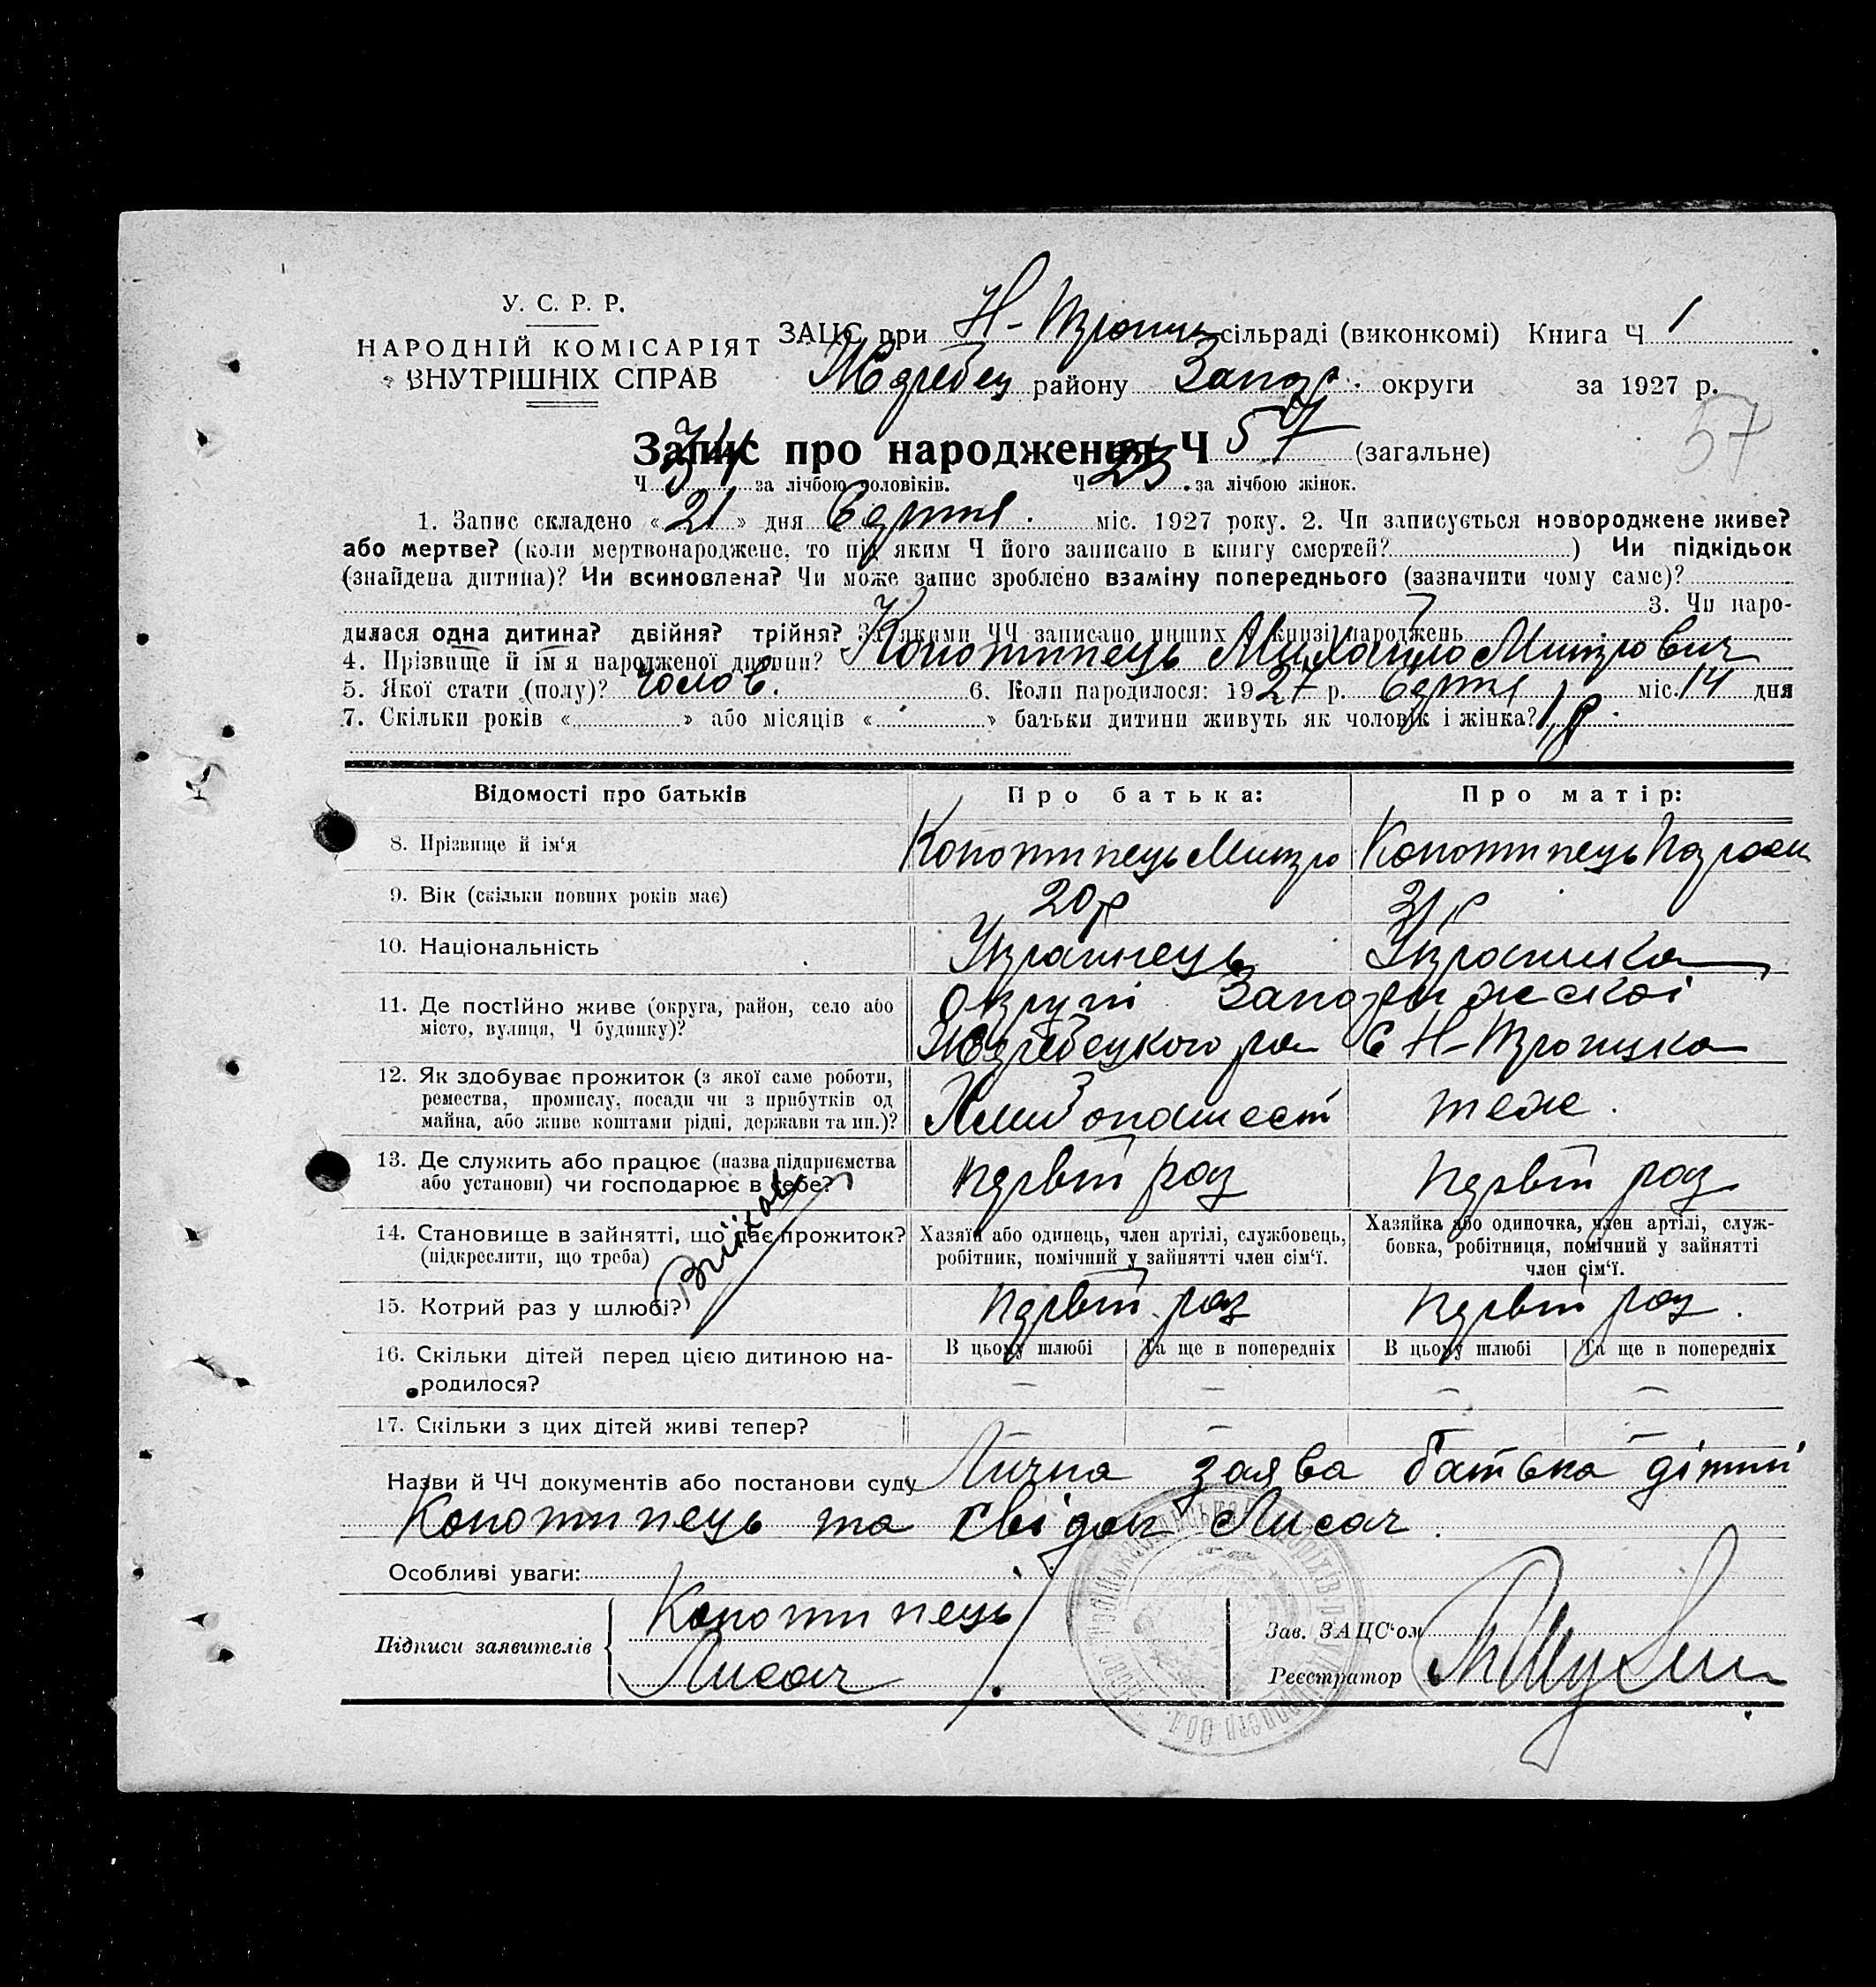 У. С. Р. Р.
НАРОДНІЙ КОМІСАРІЯТ
ВНУТРІШНІХ СПРАВ
ЗАЦС при Н- сільраді (виконкомі) Книга Ч 1
Жеребец району Запор. округи за 1927 р.
57
Запис про народження Ч 57 (загальне)
Ч 34 за лічбою чоловіків. Ч 23 за лічбою жінок.
1. Запис складено « 21 » дня Серпня міс. 1927 року. 2. Чи записується новороджене живе?
або мертве? (коли мертвонароджене, то під яким Ч його записано в книгу смертей? ) Чи підкідьок
(знайдена дитина)? Чи всиновлена? Чи може запис зроблено взаміну попереднього (зазначити чому саме)?
3. Чи наро-
дилася одна дитина? двійня? трійня? За якими ЧЧ записано инших у книзі народжень
4. Прізвище й ім'я народженої дитини? Конотипець Михайло Митрович
5. Якої стати (полу)? Чолов. 6. Коли народилося: 1927 р. Серпня міс. 14 дня
7. Скільки років « » або місяців « » батьки дитини живуть як чоловік і жінка? 1 р.
Відомості про батьків Про батька: Про матір:
8. Прізвище й ім'я Конотипець Митро Конотипець
9. Вік (скільки повних років має) 20 р 21 р
10. Національність Українець Українка
11. Де постійно живе (округа, район, село або місто, вулиця, Ч будинку)? Округи Запоріжскої
Жеребецкого ра С Н-Троицка
12. Як здобуває прожиток (з якої саме роботи, ремества, промислу, посади чи з прибутків од майна, або живе коштами рідні, держави та ин.)? теж.
13. Де служить або працює (назва підприємства або установи) чи господарює в себе? первий раз первий раз
14. Становище в зайнятті, що дає прожиток? (підкреслити, що треба) Хазяїн або одинець, член артілі, службовець, робітник, помічний у зайнятті член сім'ї. Хазяйка або одиночка, член артілі, служ-бовка, робітниця, помічний у зайнятті член сім'ї.
15. Котрий раз у шлюбі? первий раз первий раз.
16. Скільки дітей перед цією дитиною на-родилося? В цьому шлюбі – Та ще в попередніх – В цьому шлюбі – Та ще в попередніх –
17. Скільки з цих дітей живі тепер? – – – –
Назви й ЧЧ документів або постанови суду Лична заява батька
Конотипець та свідок Лисач.
Особливі уваги:
Підписи заявителів Конотипець
Лисач
Зав. ЗАЦС'ом
Реєстратор